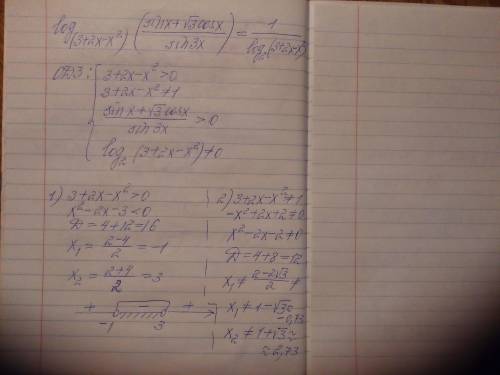 log_(3+2x-x²) ((sinx+√3cosx)/(sin3x)) = 1/(log₂(3+2x-x²))
ОДЗ: { 3+2x-x²>0
3+2x-x²≠1
(sinx+√3cosx)/(sin3x) > 0
log₂(3+2x-x²)≠0
1) 3+2x-x²>0
x²-2x-3<0
D=4+12=16
x₁=(2-4)/2=-1
x₂=(2+4)/2=3
+ - +
-1 3
2) 3+2x-x²≠1
-x²+2x+2≠0
x²-2x-2≠0
D=4+8=12
x₁≠(2-2√3)/2≠
x₁≠1-√3≈
-0,73
x₂≠1+√3≈
≈2,73